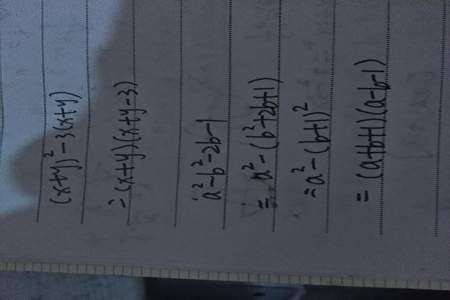 (x+y)²-3(x+y)
=(x+y)(x+y-3)
a²-b²-2b-1
=a²-(b²+2b+1)
=a²-(b+1)²
=(a+b+1)(a-b-1)